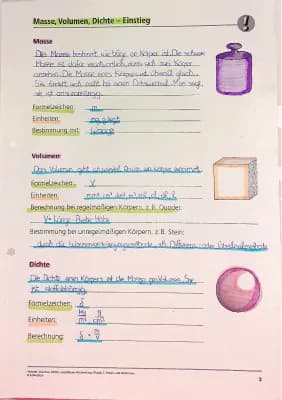 Masse, Volumen, Dichte – Einstieg
Masse
Die Masse bestimmt, wie ein Körper ist. Die schwere
Masse ist dafür verantwortlich, dass sich zwei Körper
anziehen. Die Masse eines Körpers ist überall gleich.
Sie ändert sich nicht bei einem Ortswechsel. Man sagt,
sie ist ortsunabhängig.
Formelzeichen: m
Einheiten: mg, g, kg, t
Bestimmung mit: Waage
Volumen:
Das Volumen gibt an, wieviel Raum ein Körper einnimmt.
Formelzeichen: V
Einheiten:
Berechnung bei regelmäßigen Körpern, z.B. Quader:
V = Länge · Breite · Höhe
Bestimmung bei unregelmäßigen Körpern, z.B. Stein:
durch die Wasserverdrängungsmethode, als Differenz- oder Überlaufmethode
Dichte
Die Dichte eines Körpers ist die Masse pro Volumen. Sie
ist stoffabhängig.
Formelzeichen:
Einheiten: kg/m³ g/cm³
Berechnung: = m/V
3